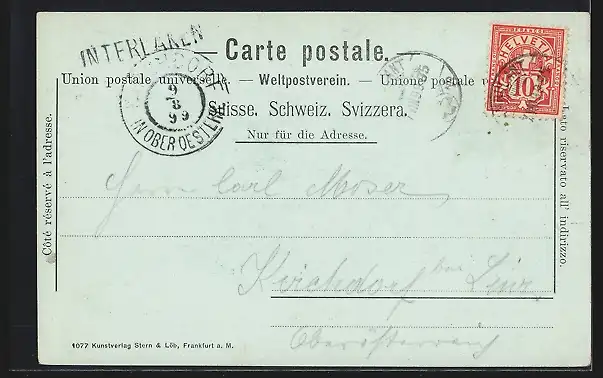 INTERLAKEN
Carte postale.
Union postale universelle. — Weltpostverein. — Unione postale
Suisse. Schweiz. Svizzera.
Nur für die Adresse.
Côté réservé à l'adresse.
Lato riservato all' indirizzo.
FRANCO
HELVETIA
10
9
8
99
IN OBER OESTERR
Herrn Carl Moser
Kirchdorf bei Linz
Oberösterreich
1077 Kunstverlag Stern & Löb, Frankfurt a. M.